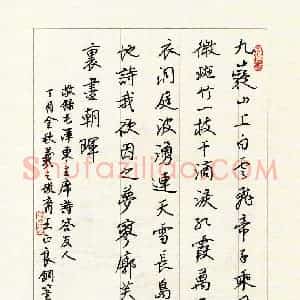 九嶷山上白雲飛帝子乘
微斑竹一枝千滴淚紅霞萬
衣洞庭波湧連天雪長島
地詩我欲因之夢寥廓芙
裏盡朝暉
敬錄毛澤東主席詩答友人
丁酉金秋羲之後裔王正良鋼筆
Shufaziliao.com